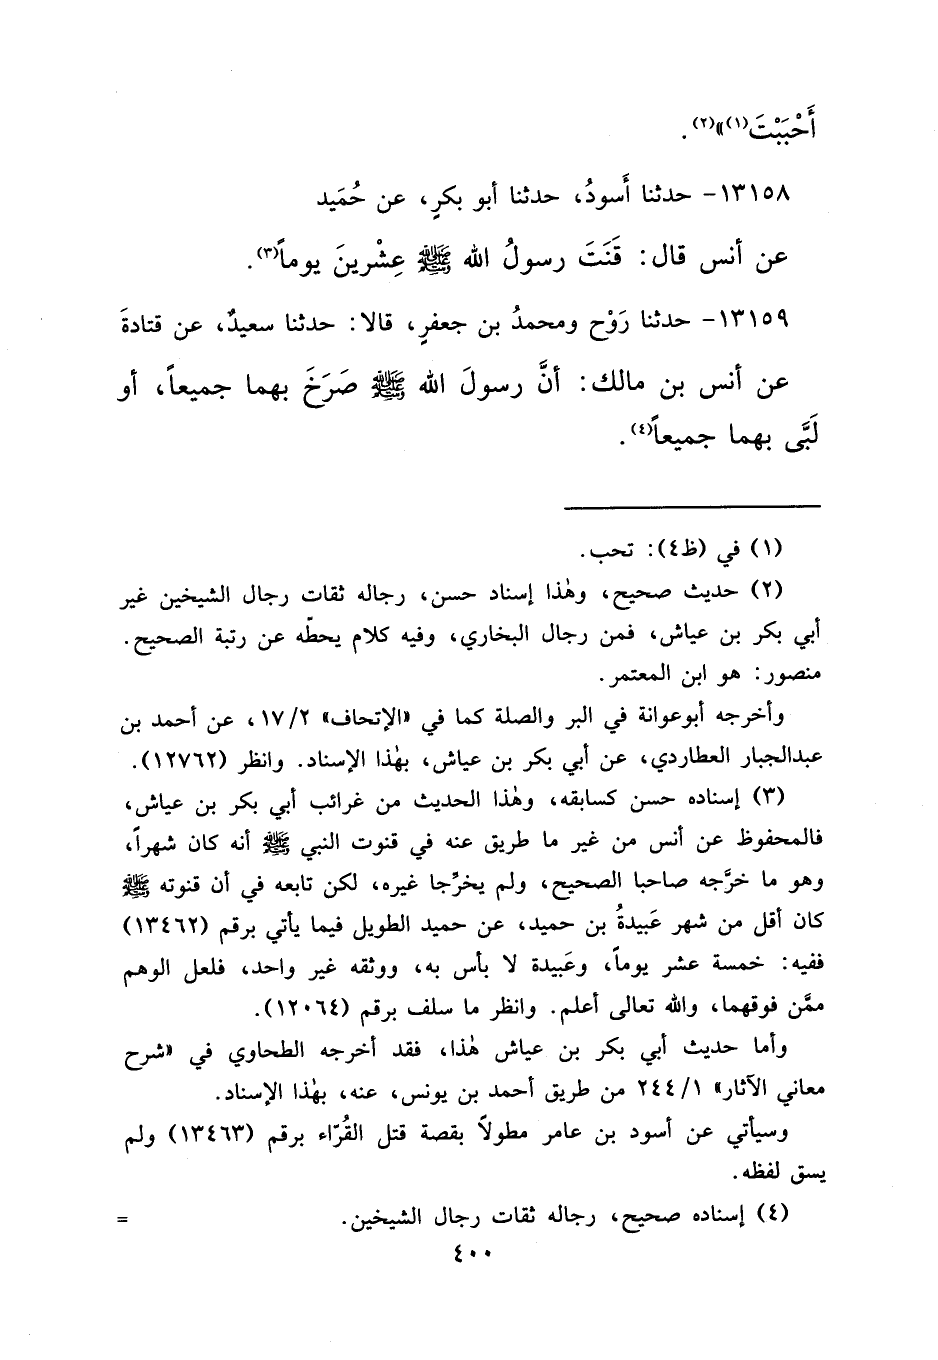 أَحْبَبْتَ(١)»(٢).
١٣١٥٨- حدثنا أَسودُ، حدثنا أبو بكرٍ، عن حُمَيد
عن أنس قال: قَنَتَ رسولُ الله ﷺ عِشْرينَ يوماً(٣).
١٣١٥٩- حدثنا رَوْح ومحمدُ بن جعفرٍ، قالا: حدثنا سعيدٌ، عن قتادةَ
عن أنس بن مالك: أنَّ رسولَ الله ﷺ صَرَخَ بهما جميعاً، أو
لَبَّى بهما جميعاً(٤).
(١) في (ظ٤): تحب.
(٢) حديث صحيح، وهٰذا إسناد حسن، رجاله ثقات رجال الشيخين غير
أبي بكر بن عياش، فمن رجال البخاري، وفيه كلام يحطّه عن رتبة الصحيح.
منصور: هو ابن المعتمر.
وأخرجه أبوعوانة في البر والصلة كما في «الإتحاف» ١٧/٢، عن أحمد بن
عبدالجبار العطاردي، عن أبي بكر بن عياش، بهٰذا الإسناد. وانظر (١٢٧٦٢).
(٣) إسناده حسن كسابقه، وهٰذا الحديث من غرائب أبي بكر بن عياش،
فالمحفوظ عن أنس من غير ما طريق عنه في قنوت النبي ﷺ أنه كان شهراً،
وهو ما خرَّجه صاحبا الصحيح، ولم يخرِّجا غيره، لكن تابعه في أن قنوته ﷺ
كان أقل من شهر عَبيدةُ بن حميد، عن حميد الطويل فيما يأتي برقم (١٣٤٦٢)
ففيه: خمسة عشر يوماً، وعَبيدة لا بأس به، ووثقه غير واحد، فلعل الوهم
ممَّن فوقهما، والله تعالى أعلم. وانظر ما سلف برقم (١٢٠٦٤).
وأما حديث أبي بكر بن عياش هٰذا، فقد أخرجه الطحاوي في «شرح
معاني الآثار» ٢٤٤/١ من طريق أحمد بن يونس، عنه، بهٰذا الإسناد.
وسيأتي عن أسود بن عامر مطولاً بقصة قتل القُرّاء برقم (١٣٤٦٣) ولم
يسق لفظه.
(٤) إسناده صحيح، رجاله ثقات رجال الشيخين. =
٤٠٠